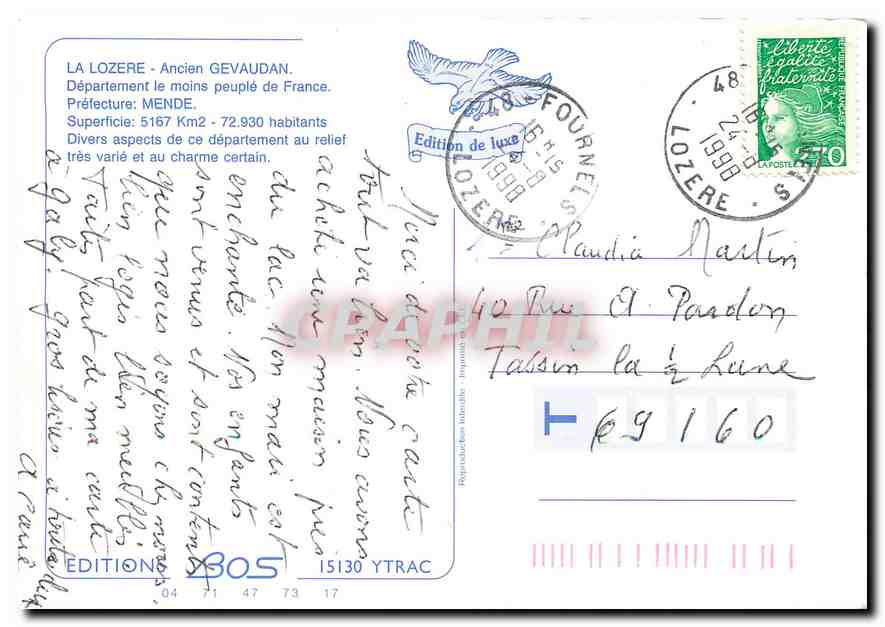 LA LOZERE - Ancien GEVAUDAN.
Département le moins peuplé de France.
Préfecture: MENDE.
Superficie: 5167 Km2 - 72.930 habitants
Divers aspects de ce département au relief
très varié et au charme certain.
Edition de luxe
48 - FOURNELS
16 H 15
24-8
1998
LOZERE
liberté
égalité
fraternité
RÉPUBLIQUE FRANÇAISE
2,70
LA POSTE
48
16 H 15
24-8
1998
LOZERE
Merci de votre carte
tout va bien. Nous avons
acheté une maison près
du lac Mon mari est
enchanté. Nos enfants
sont venus et sont contents
que nous soyons chez nous.
bien logés bien meublés
Faites part de ma carte
à Gaby. gros bises à toutes deux
Claudia Martin
40 Rue A. Pardon
Tassin la ½ Lune
69160
CPAPHIL
Reproduction Interdite - Imprimé
EDITIONS BOS 15130 YTRAC
04 71 47 73 17